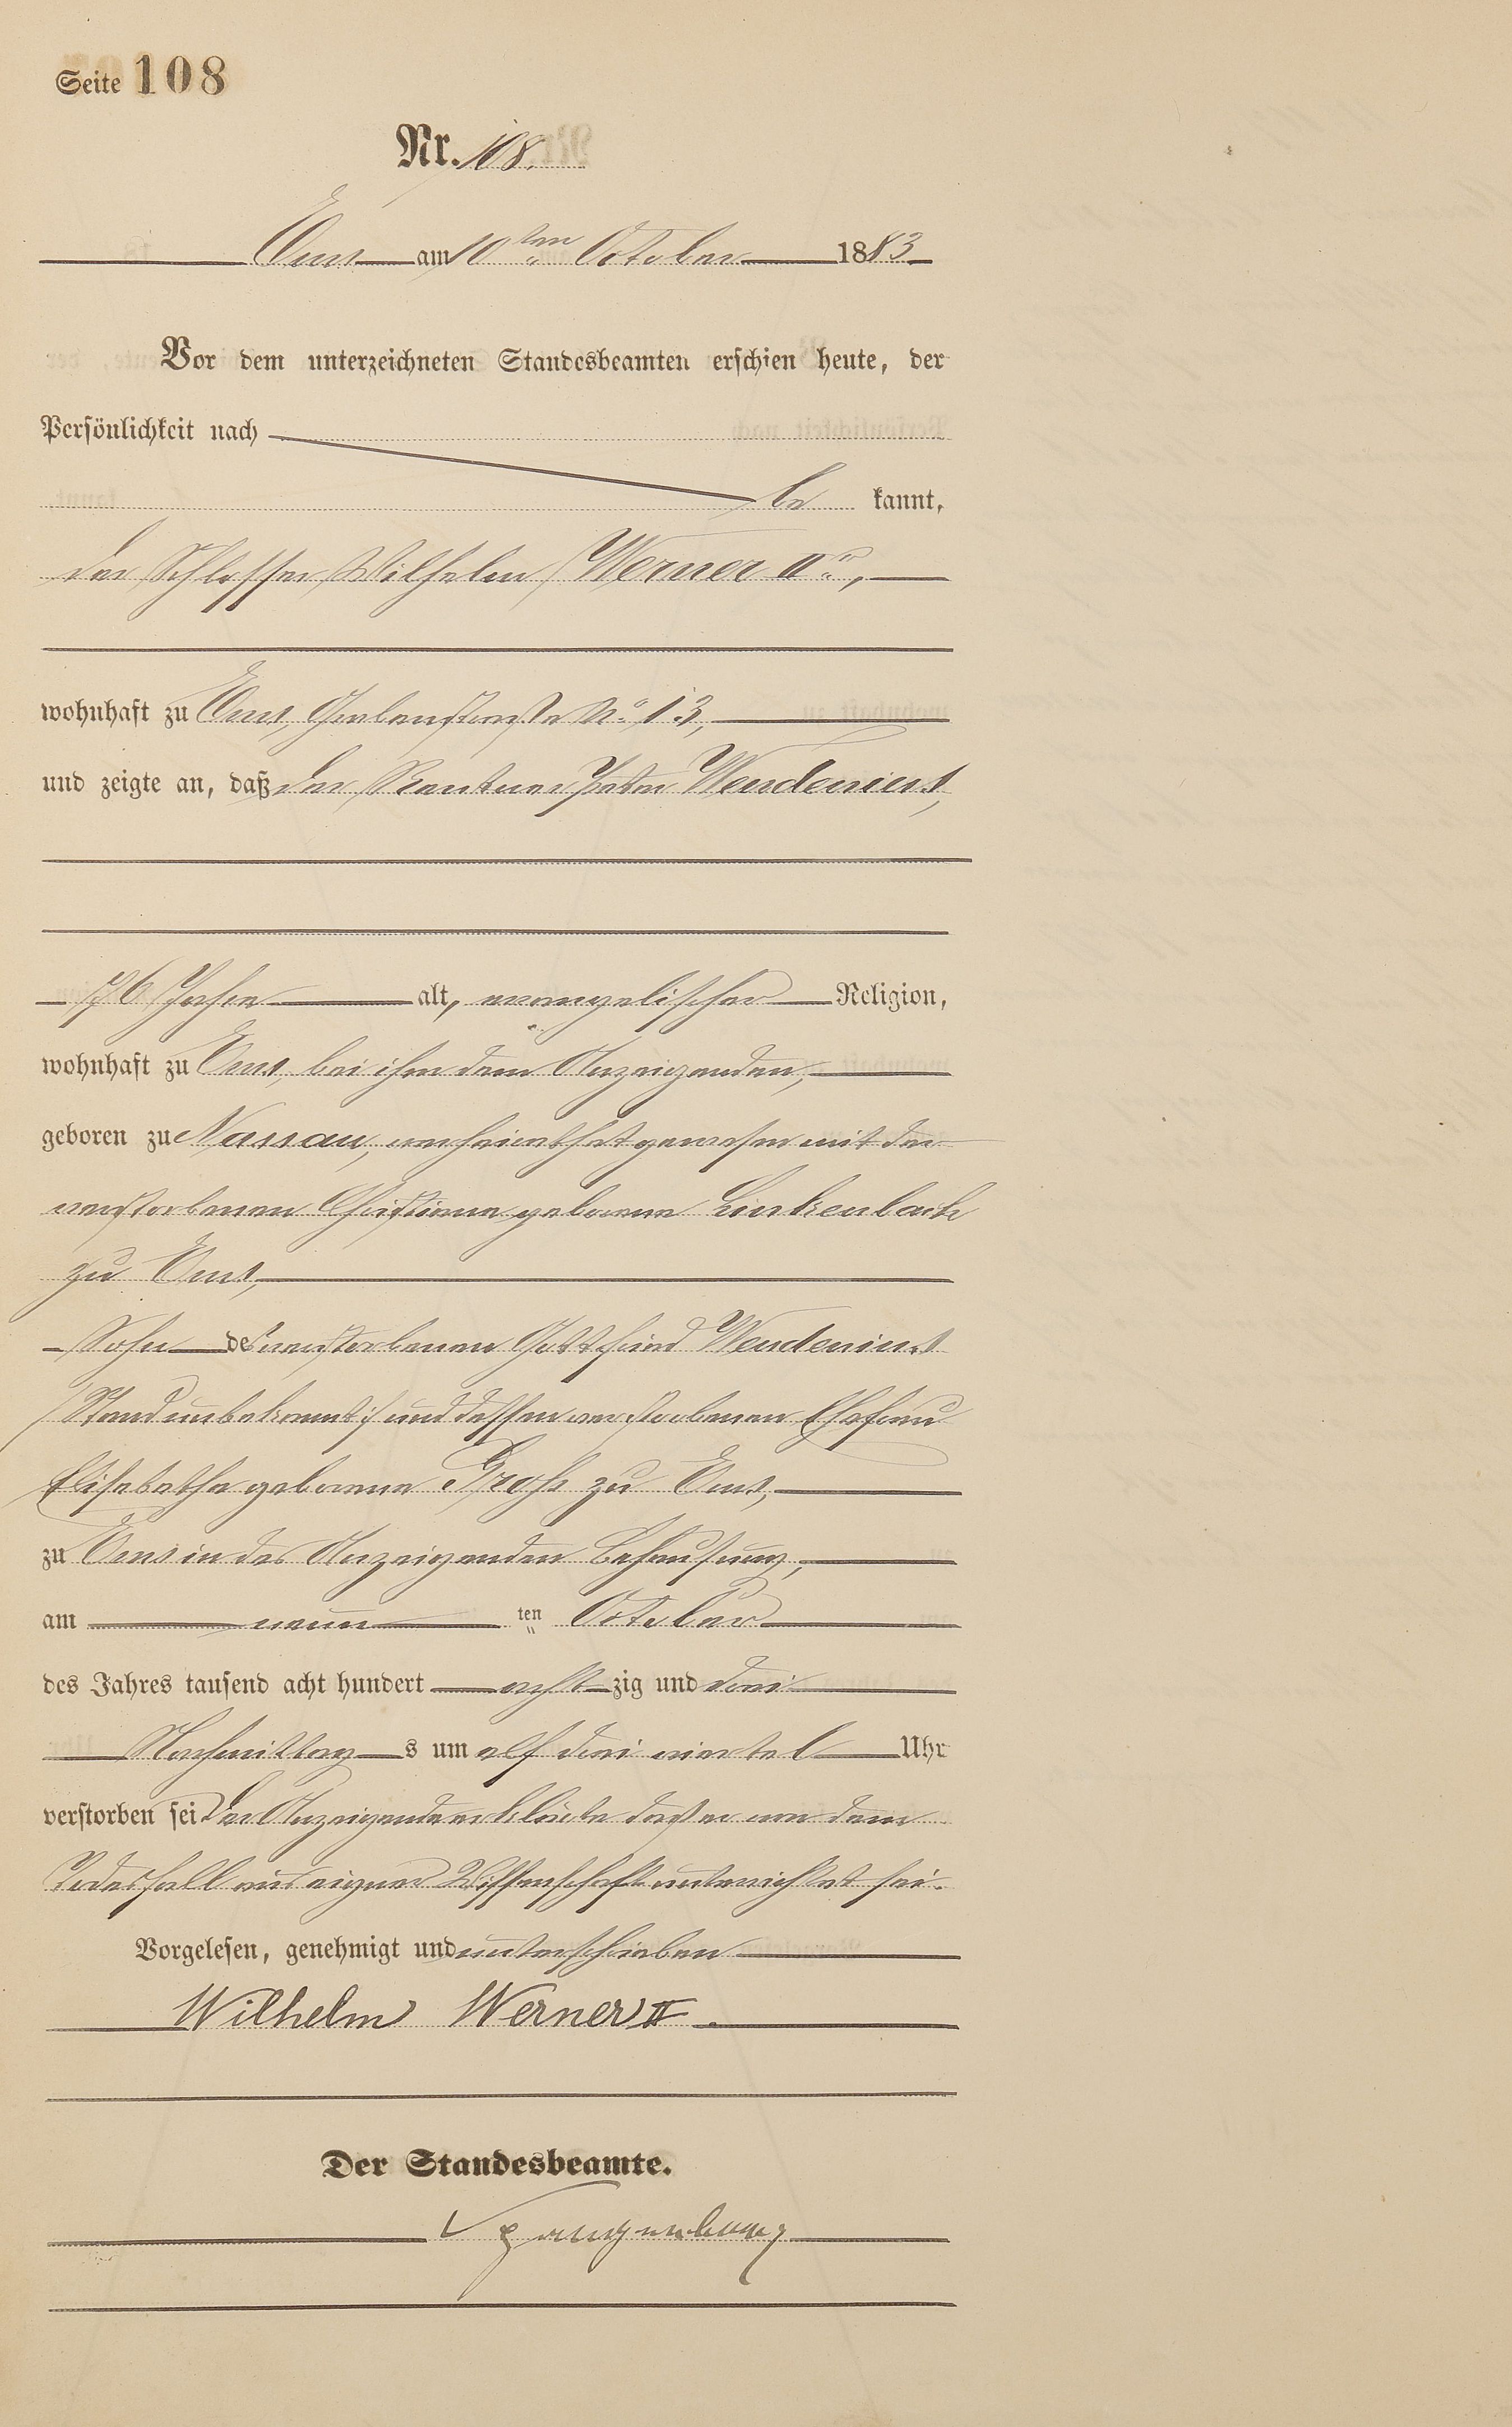 Seite 108
Nr. 108.
Ems am 10ten October 1883
Vor dem unterzeichneten Standesbeamten erschien heute, der
Persönlichkeit nach
be kannt,
der Schlosser Wilhelm Werner IIr.,
wohnhaft zu Ems, Grabenstraße No. 13,
und zeigte an, daß der Rentner Peter Wendenius,
76 Jahre alt, evangelischer Religion,
wohnhaft zu Ems, bei ihm dem Anzeigenden,
geboren zu Nassau, verheirathet gewesen mit der
verstorbenen Christiane geborene Linkenbach
zu Ems,
Sohn des verstorbenen Gottfried Wendenius
/:Stand unbekannt:/ und dessen verstorbenen Ehefrau
Elisabetha geborene Groß zu Ems,
zu Ems in des Anzeigenden Behausung,
am neun ten October
des Jahres tausend acht hundert acht zig und drei
Nachmittag s um elf drei viertel Uhr
verstorben sei Der Anzeigende erklärte daß er von dem
Todesfall aus eigner Wissenschaft unterrichtet sei.
Vorgelesen, genehmigt und unterschrieben
Wilhelm Werner II.
Der Standesbeamte.
Spangenberg